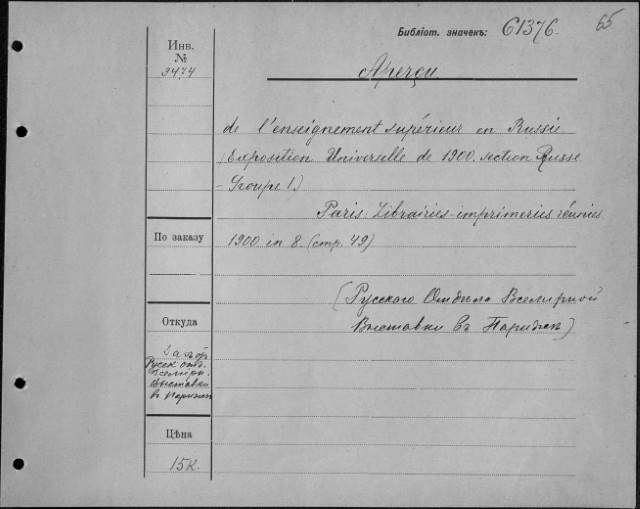 Библіот. значекъ: 61376.
65
Инв.
№
9474
Aperçu
de l'enseignement supérieur en Russie
(Exposition Universelle de 1900. section Russe
- Groupe 1.)
Paris: Librairies-imprimeries réunies
По заказу
1900 in 8. (стр. 49)
(Русскаго Отдѣла Всемирной
Выставки въ Парижѣ)
Откуда
Русск отд.
Всемирн.
выставки
в Париже
Цѣна
15к.